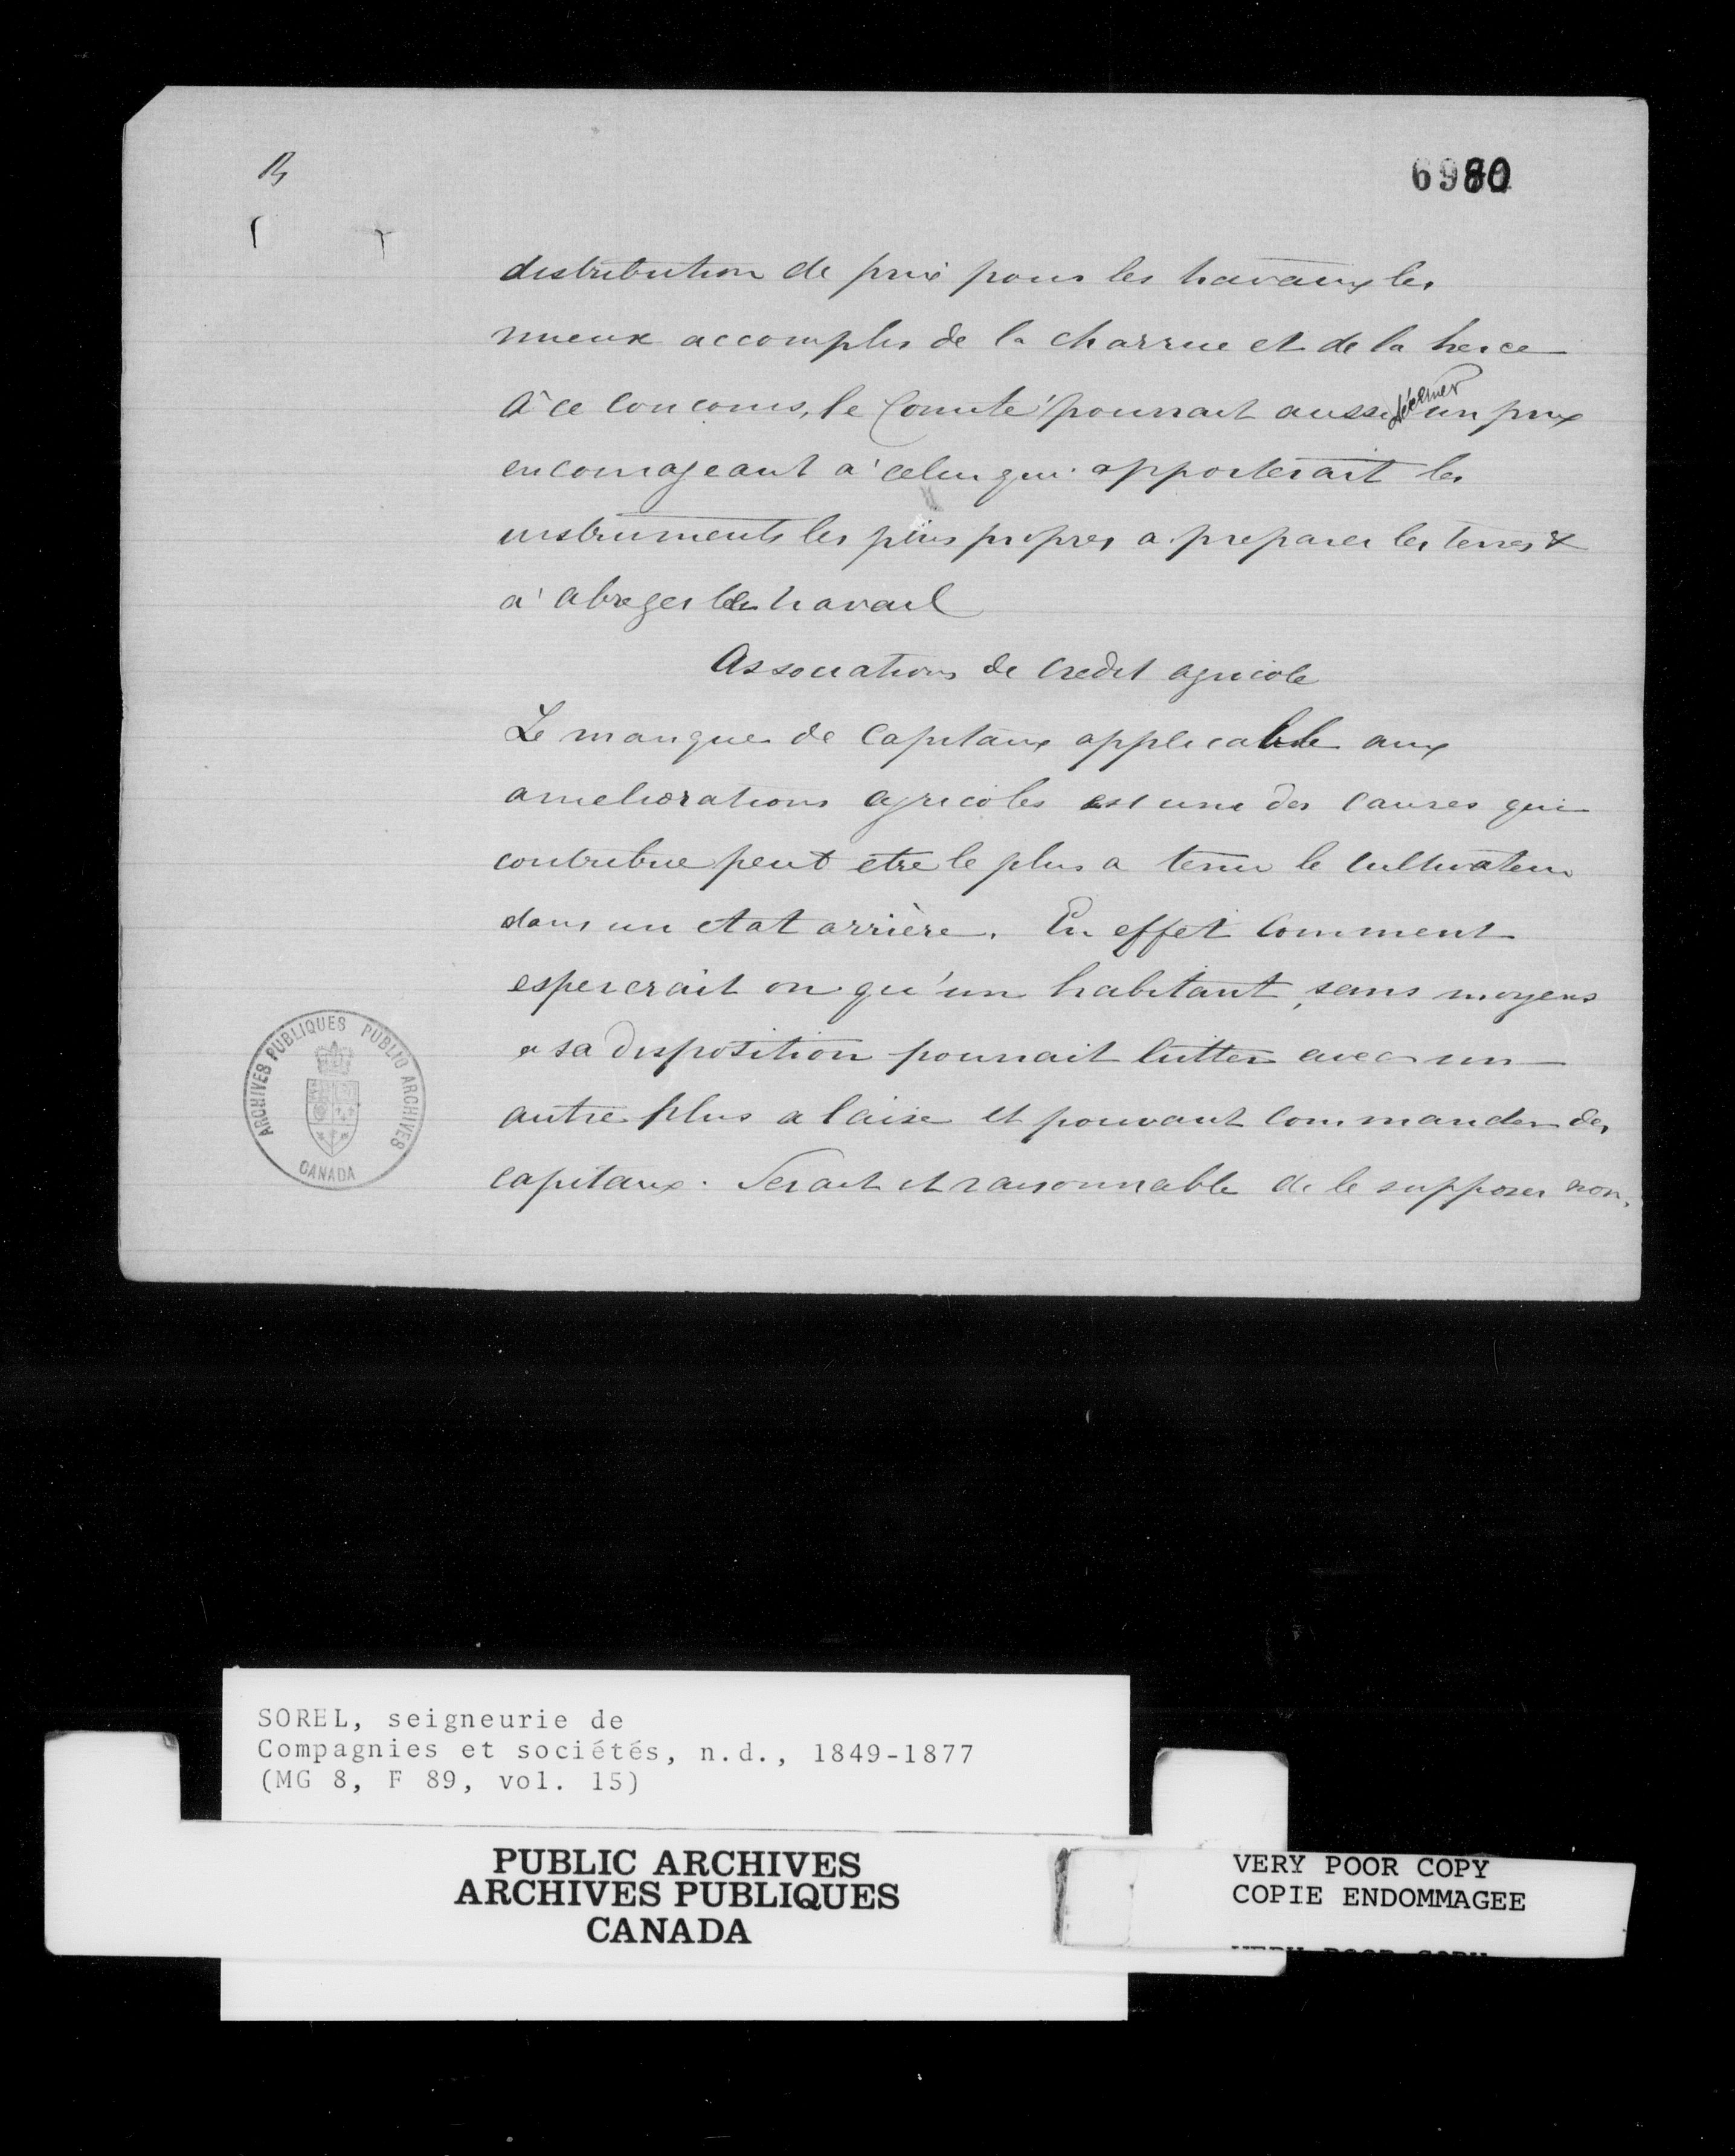 6980
distribution de prix pour les travaux les
mieux accomplis de la charrue et de la herse
A ce concours, le Comité pourrait aussi décerner un prix
encourageant à celui qui apporterait les
instruments les plus propres a préparer les terres &
à abreger le travail
Associations de Credit agricole
Le manque de Capitaux applicable aux
ameliorations agricoles est une des causes qui
contribue peut etre le plus a tenir le cultivateur
dans un etat arrière. En effet comment
espererait on qu'un habitant, sans moyens
a sa disposition pourrait lutter avec un
autre plus a laise et pouvant commander des
capitaux. Serait il raisonnable de le supposer non,
ARCHIVES PUBLIQUES PUBLIC ARCHIVES
CANADA
SOREL, seigneurie de
Compagnies et sociétés, n.d., 1849-1877
(MG 8, F 89, vol. 15)
PUBLIC ARCHIVES
ARCHIVES PUBLIQUES
CANADA
VERY POOR COPY
COPIE ENDOMMAGEE
VERY POOR COPY